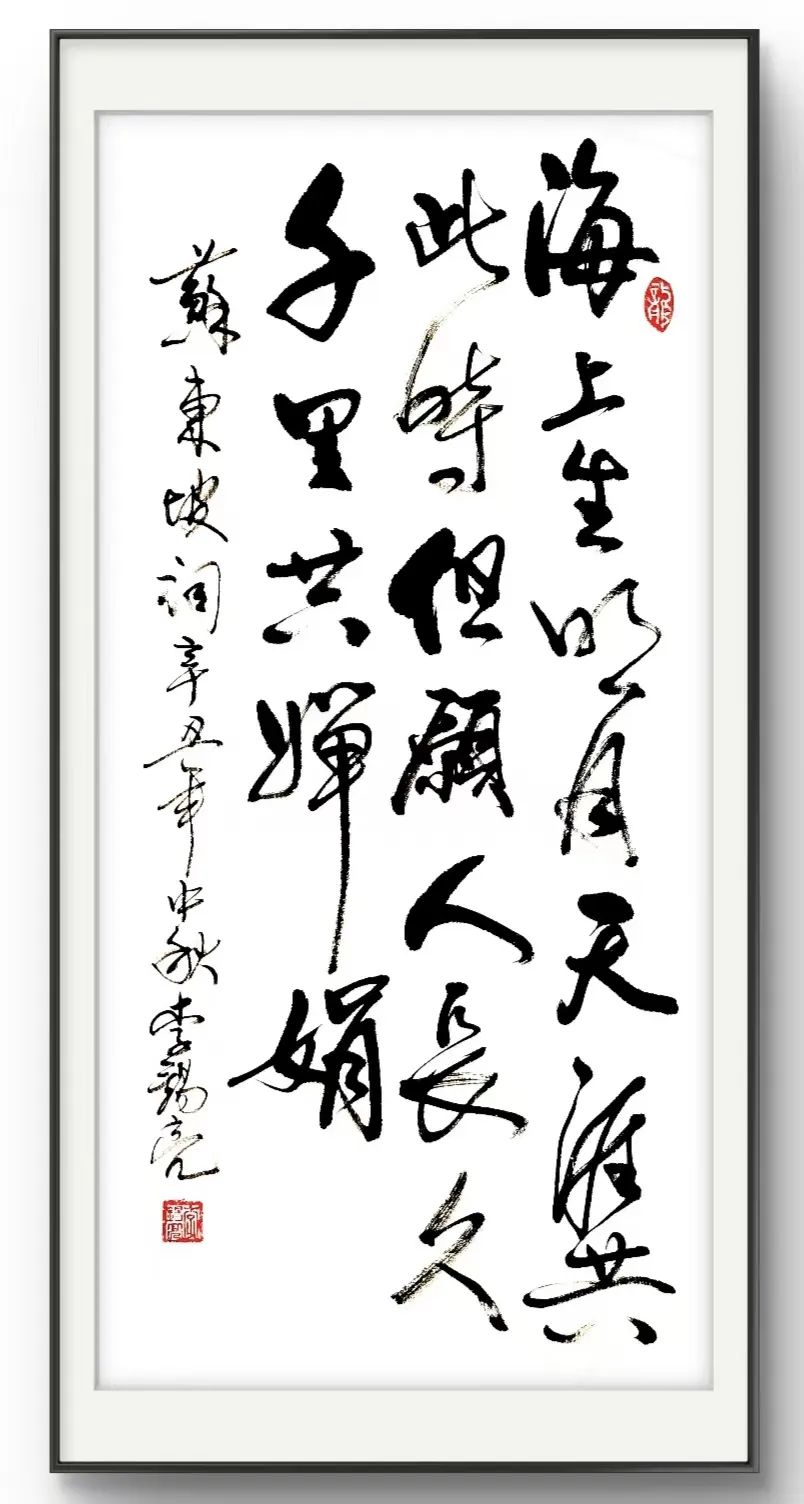 海上生明月天涯共
此時但願人長久
千里共嬋娟
蘇東坡詞辛丑年中秋李錫亮